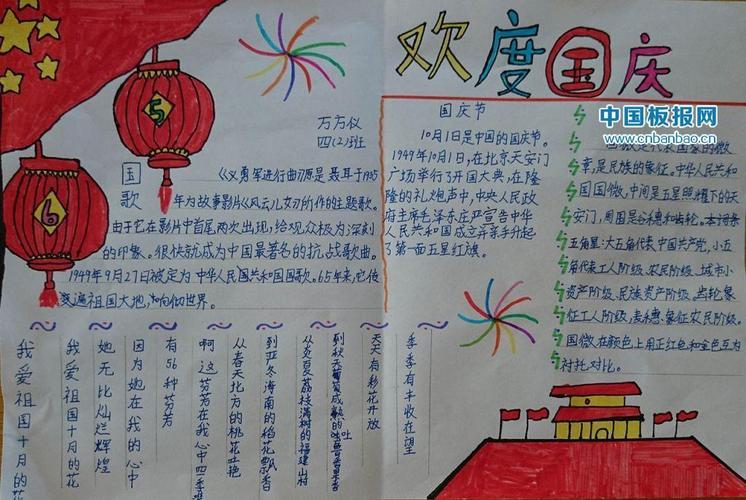 欢度国庆
中国板报网
www.cnbanbao.cn
5
6
万方仪
四(2)班
国歌
《义勇军进行曲》原是聂耳于1935
年为故事影片《风云儿女》所作的主题歌。
由于它在影片中首尾两次出现,给观众极为深刻
的印象。很快就成为中国最著名的抗战歌曲。
1949年9月27日被定为中华人民国共和国国歌。65年来,它传
遍祖国大地,响彻世界。
国庆节
10月1日是中国的国庆节。
1949年10月1日,在北京天安门
广场举行了开国大典,在隆
隆的礼炮声中,中央人民政
府主席毛泽东庄严宣告中华
人民共和国成立并亲手升起
了第一面五星红旗。
国徽是代表国家的徽
章,是民族的象征。中华人民共和
国国徽,中间是五星照耀下的天
安门,周围是谷穗和齿轮。
五角星:大五角代表中国共产党,小五
角代表工人阶级、农民阶级、城市小
资产阶级、民族资产阶级。齿轮象
征工人阶级,麦穗象征农民阶级。
国徽在颜色上用正红色和金色互为
衬托对比。
季季有丰收在望
天天有移花开放
到秋天
从炎夏荔枝满树的福建山村
到严冬海南的稻花飘香
从春天北方的桃花吐艳
啊这芬芳在我心中四季
有56种芬芳
因为她在我的心中
她无比灿烂辉煌
我爱祖国十月的花
我爱祖国十月的花